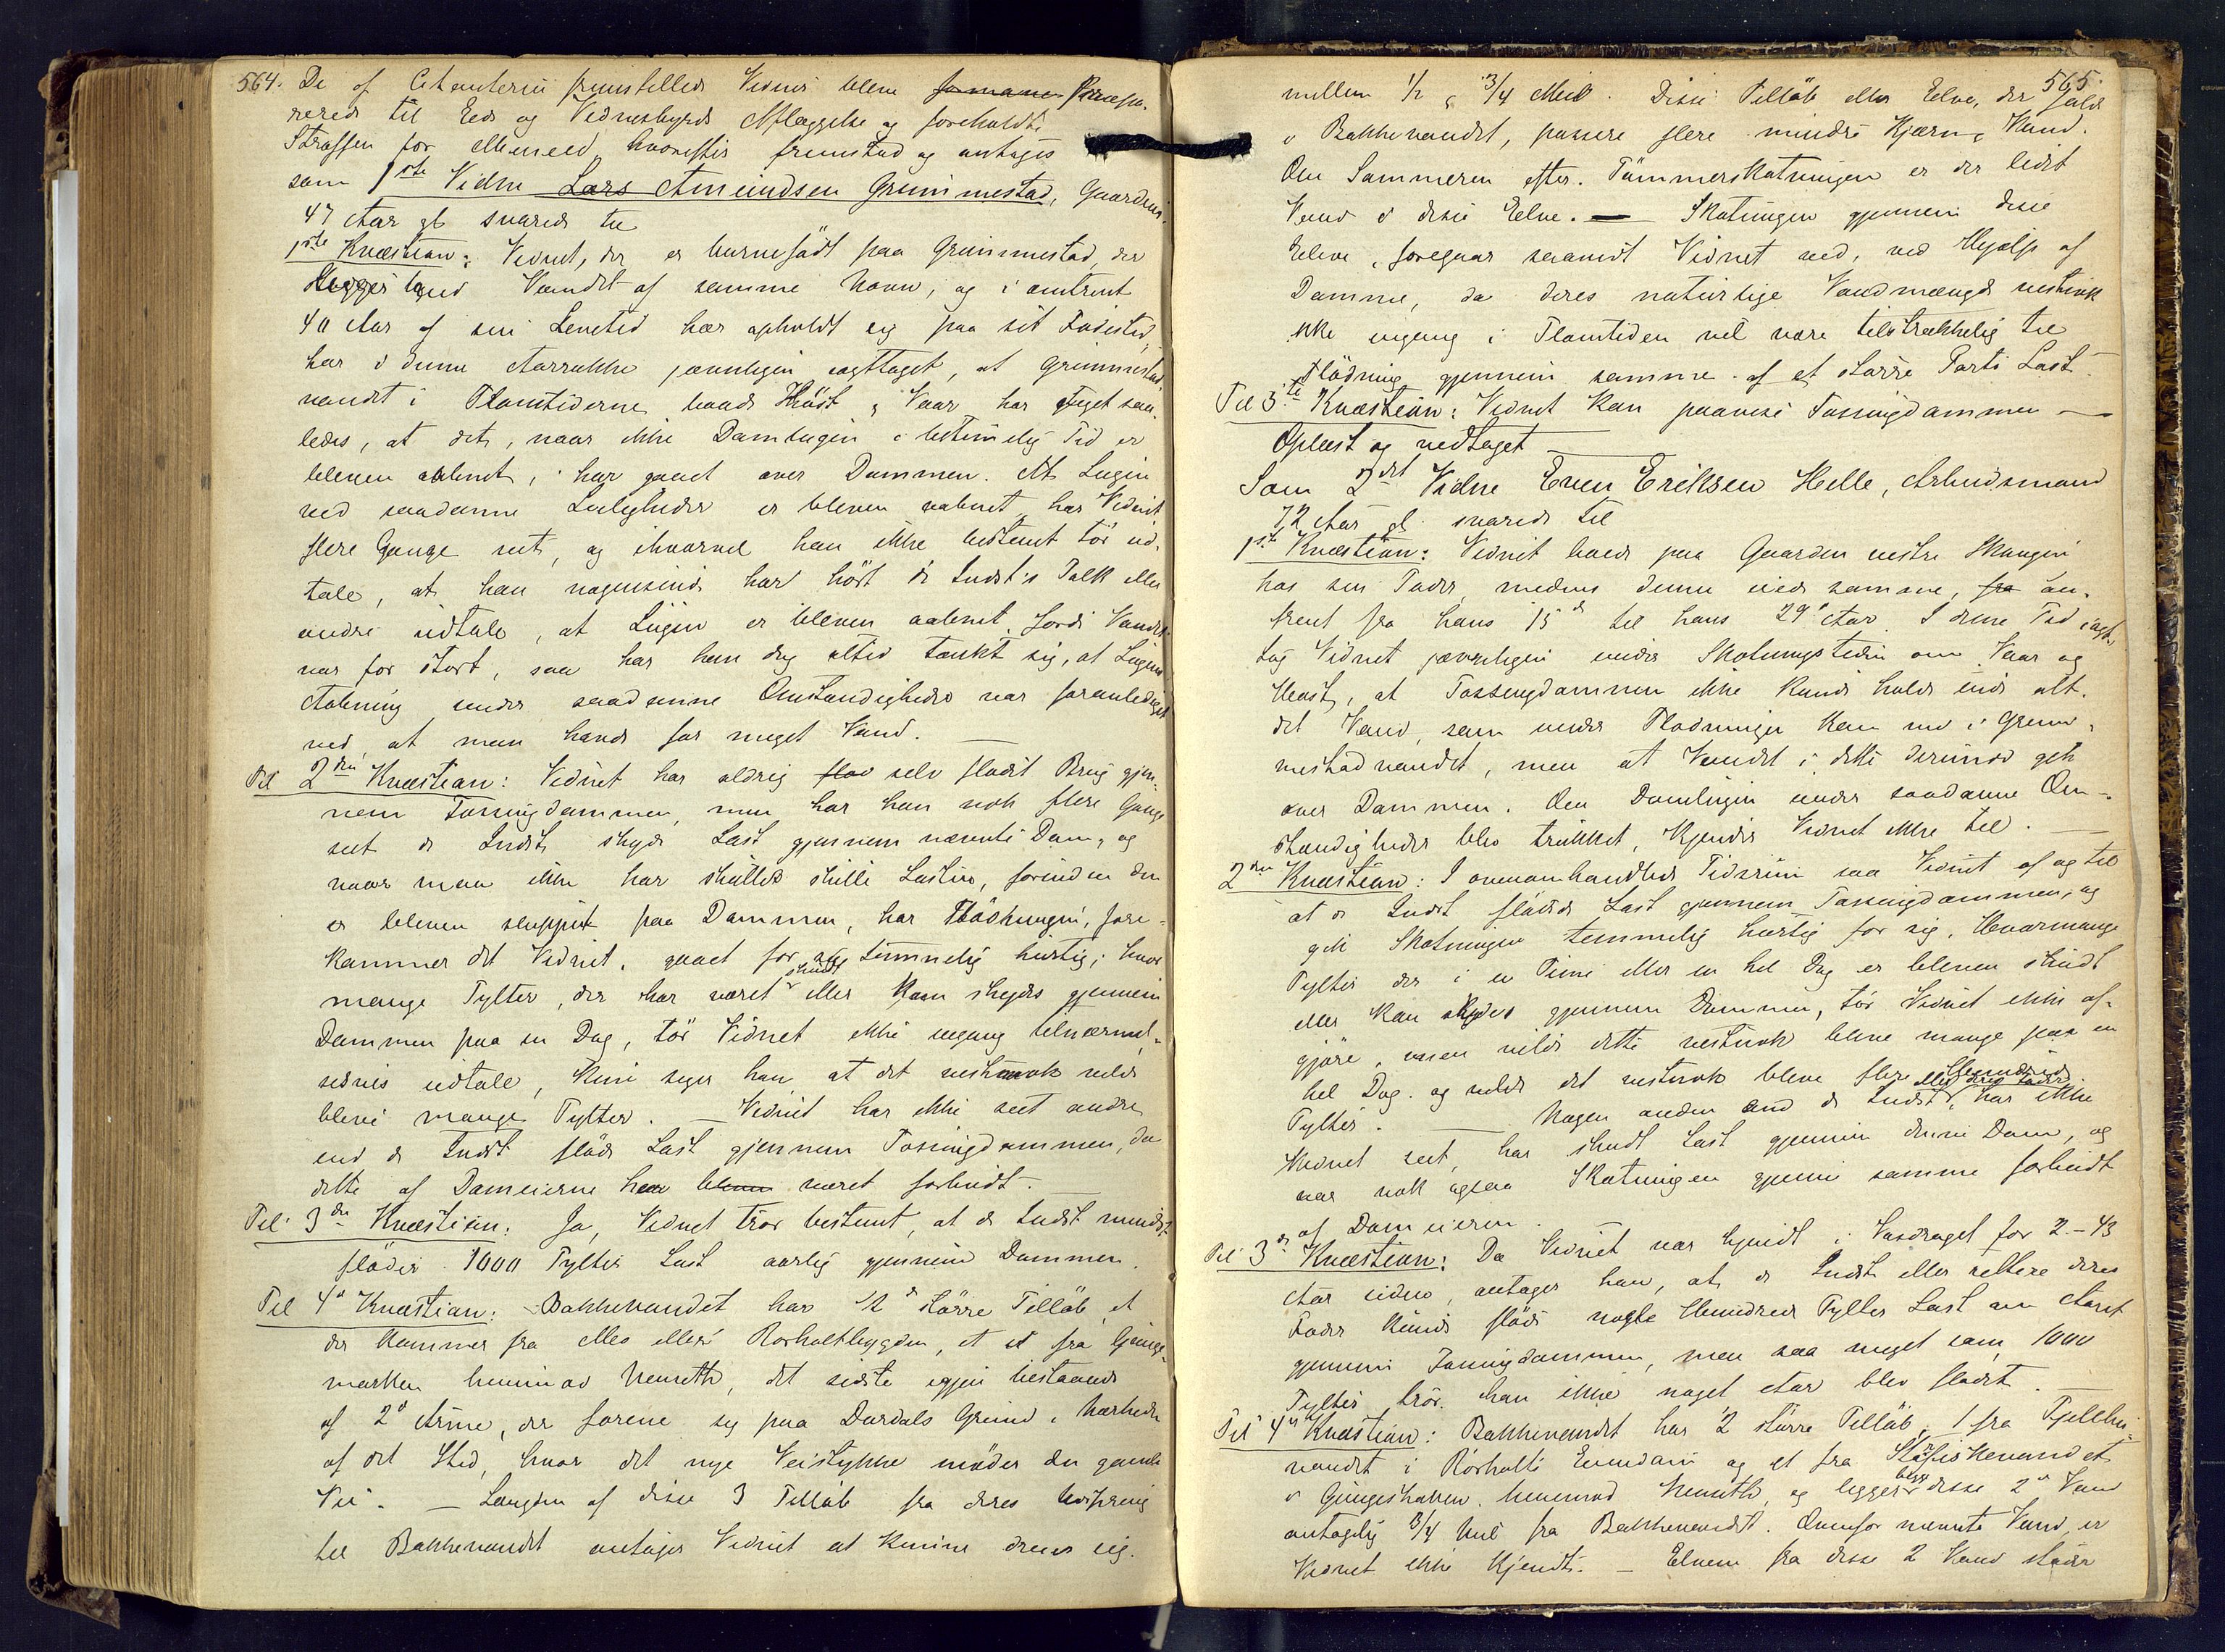 564.
De af Citanterne fremstillede Vidner bleve formane Præpa-
rerede til Eeds og Vidnesbyrds Aflæggelse og foreholdte
Straffen for Meneed, hvorefter fremstod og antoges
som 1ste Vidne Lars Amundsen Grummestad, Gaardm.
47 Aar gl svarede til
1ste Kvæstion: Vidnet, der er barnefødt paa Grummestad, der
ligger ved Vandet af samme Navn, og i omtrent
40 Aar af sin Levetid har opholdt sig paa sit Fødested,
har i denne Aarrække jevnligen iagttaget, at Grummestad-
vandet i Flomtiderne baade Høst & Vaar har steget saa-
ledes, at det, naar ikke Damlugen i betimelig Tid er
bleven aabnet, har gaaet over Dammen. At Lugen
ved saadanne Leiligheder er bleven aabnet har Vidnet
flere Gange seet, og ihvorvel han ikke bestemt tør ud-
tale, at han nogensinde har hørt de Indst's Folk eller
andre udtale, at Lugen er bleven aabnet, fordi Vandet
var for stort, saa har han dog altid tænkt sig, at Lugens
Aabning under saadanne Omstændigheder var foranlediget
ved, at man havde for meget Vand. —
Til 2den Kvæstion: Vidnet har aldrig flød selv flødet Brug gjen-
nem Tossingdammen, men har han nok flere Gange
seet de Indst. skyde Last gjennem nævnte Dam, og
naar man ikke har skullet skille Lasten, forinden den
er bleven sluppet paa Dammen, har Flødningen, fore-
kommer det Vidnet, gaaet for sig temmelig hurtig; hvor
mange Tylter, der har været skudt eller kan skydes gjennem
Dammen paa en Dag, tør Vidnet ikke engang tilnærmel-
sesvis udtale, kun siger han at det vistnok vilde
blive mange Tylter. — Vidnet har ikke seet andre
end de Indst fløde Last gjennem Tossingdammen, da
dette af Dameierne har bleven været forbudt. —
Til 3die Kvæstion: Ja, Vidnet tror bestemt, at de Indst mindst
fløder 1000 Tylter Last aarlig gjennem Dammen.
Til 4de Kvæstion: Bakkevandet har 2de større Tilløb, et
der kommer fra Mes eller Rørholtbygden, et et fra Gjunge-
marken henimod Nenseth, det sidste igjen bestaaende
af 2de Arme, der forene sig paa Dørdals Grund i Nærheden
af det Sted, hvor det nye Veistykke møder den gamle
Vei. — Længden af disse 3 Tilløb fra deres Udspring
til Bakkevandet antager Vidnet at kunne dreie sig
565.
mellem 1/2 & 3/4 Miil. Disse Tilløb eller Elve, der falde
i Bakkevandet, passere flere mindre Kjærn & Vand.
Om Sommeren efter Tømmerskotningen er der lidet
Vand i disse Elve. — Skotningen gjennem disse
Elve, foregaar saavidt Vidnet ved, ved Hjælp af
Damme, da deres naturlige Vandmængde vistnok
ikke engang i Flomtiden vil være tilstrækkelig til
Flødning gjennem samme af et større Parti Last.
Til 5te Kvæstion: Vidnet kan paavise Tossingdammen —
Oplæst og vedtaget —
Som 2det Vidne Even Eriksen Helle, Arbeidsmand
72 Aar gl. svarede til
1ste Kvæstion: Vidnet boede paa Gaarden vestre Skaugen
hos sin Fader, medens denne eiede samme, fra om-
trent fra hans 15de til hans 29de Aar. I denne Tid iagt-
tog Vidnet jævnligen under Skotningstiden om Vaar og
Høst, at Tossingdammen ikke kunde holde inde alt
det Vand, som under Flødningen kom ned i Grum-
mestadvandet, men at Vandet i dette derimod gik
over Dammen. Om Damlugen under saadanne Om-
stændigheder blev trukket, kjender Vidnet ikke til. —
2den Kvæstion: I ovenomhandlede Tidsrum saa Vidnet af og til
at de Indst flødede Last gjennem Tossingdammen, og
gik Skotningen temmelig hurtig for sig. Hvormange
Tylter der i en Time eller en hel Dag er bleven skudt
eller kan skydes gjennem Dammen, tør Vidnet ikke af-
gjøre, men vilde dette vistnok blive mange paa en
hel Dag, og vilde det vistnok blive flere Hundrede
Tylter. — Nogen anden end de Indst eller deres Fader, har ikke
Vidnet seet, har skudt Last gjennem denne Dam, og
var nok ogsaa Skotningen gjennem samme forbudt
af Dameieren.
Til 3die Kvæstion: Da Vidnet var kjendt i Vasdraget for 2-43
Aar siden, antager han, at de Indst eller rettere deres
Fader kunde fløde nogle Hundrede Tylter Last om Aaret
gjennem Tossingdammen, men saa meget som 1000
Tylter tror han ikke noget Aar blev flødet. —
Til 4de Kvæstion: Bakkevandet har 2 større Tilløb, 1 fra
vandet i Rørholt og et fra Støfiskevandet
i henimod Nenseth, og ligger begge disse 2de Vand
antagelig 3/4 Mil fra Bakkevandet. Ovenfor nævnte Vand, er
Vidnet ikke kjendt. — Elvene fra disse 2 Vand støder